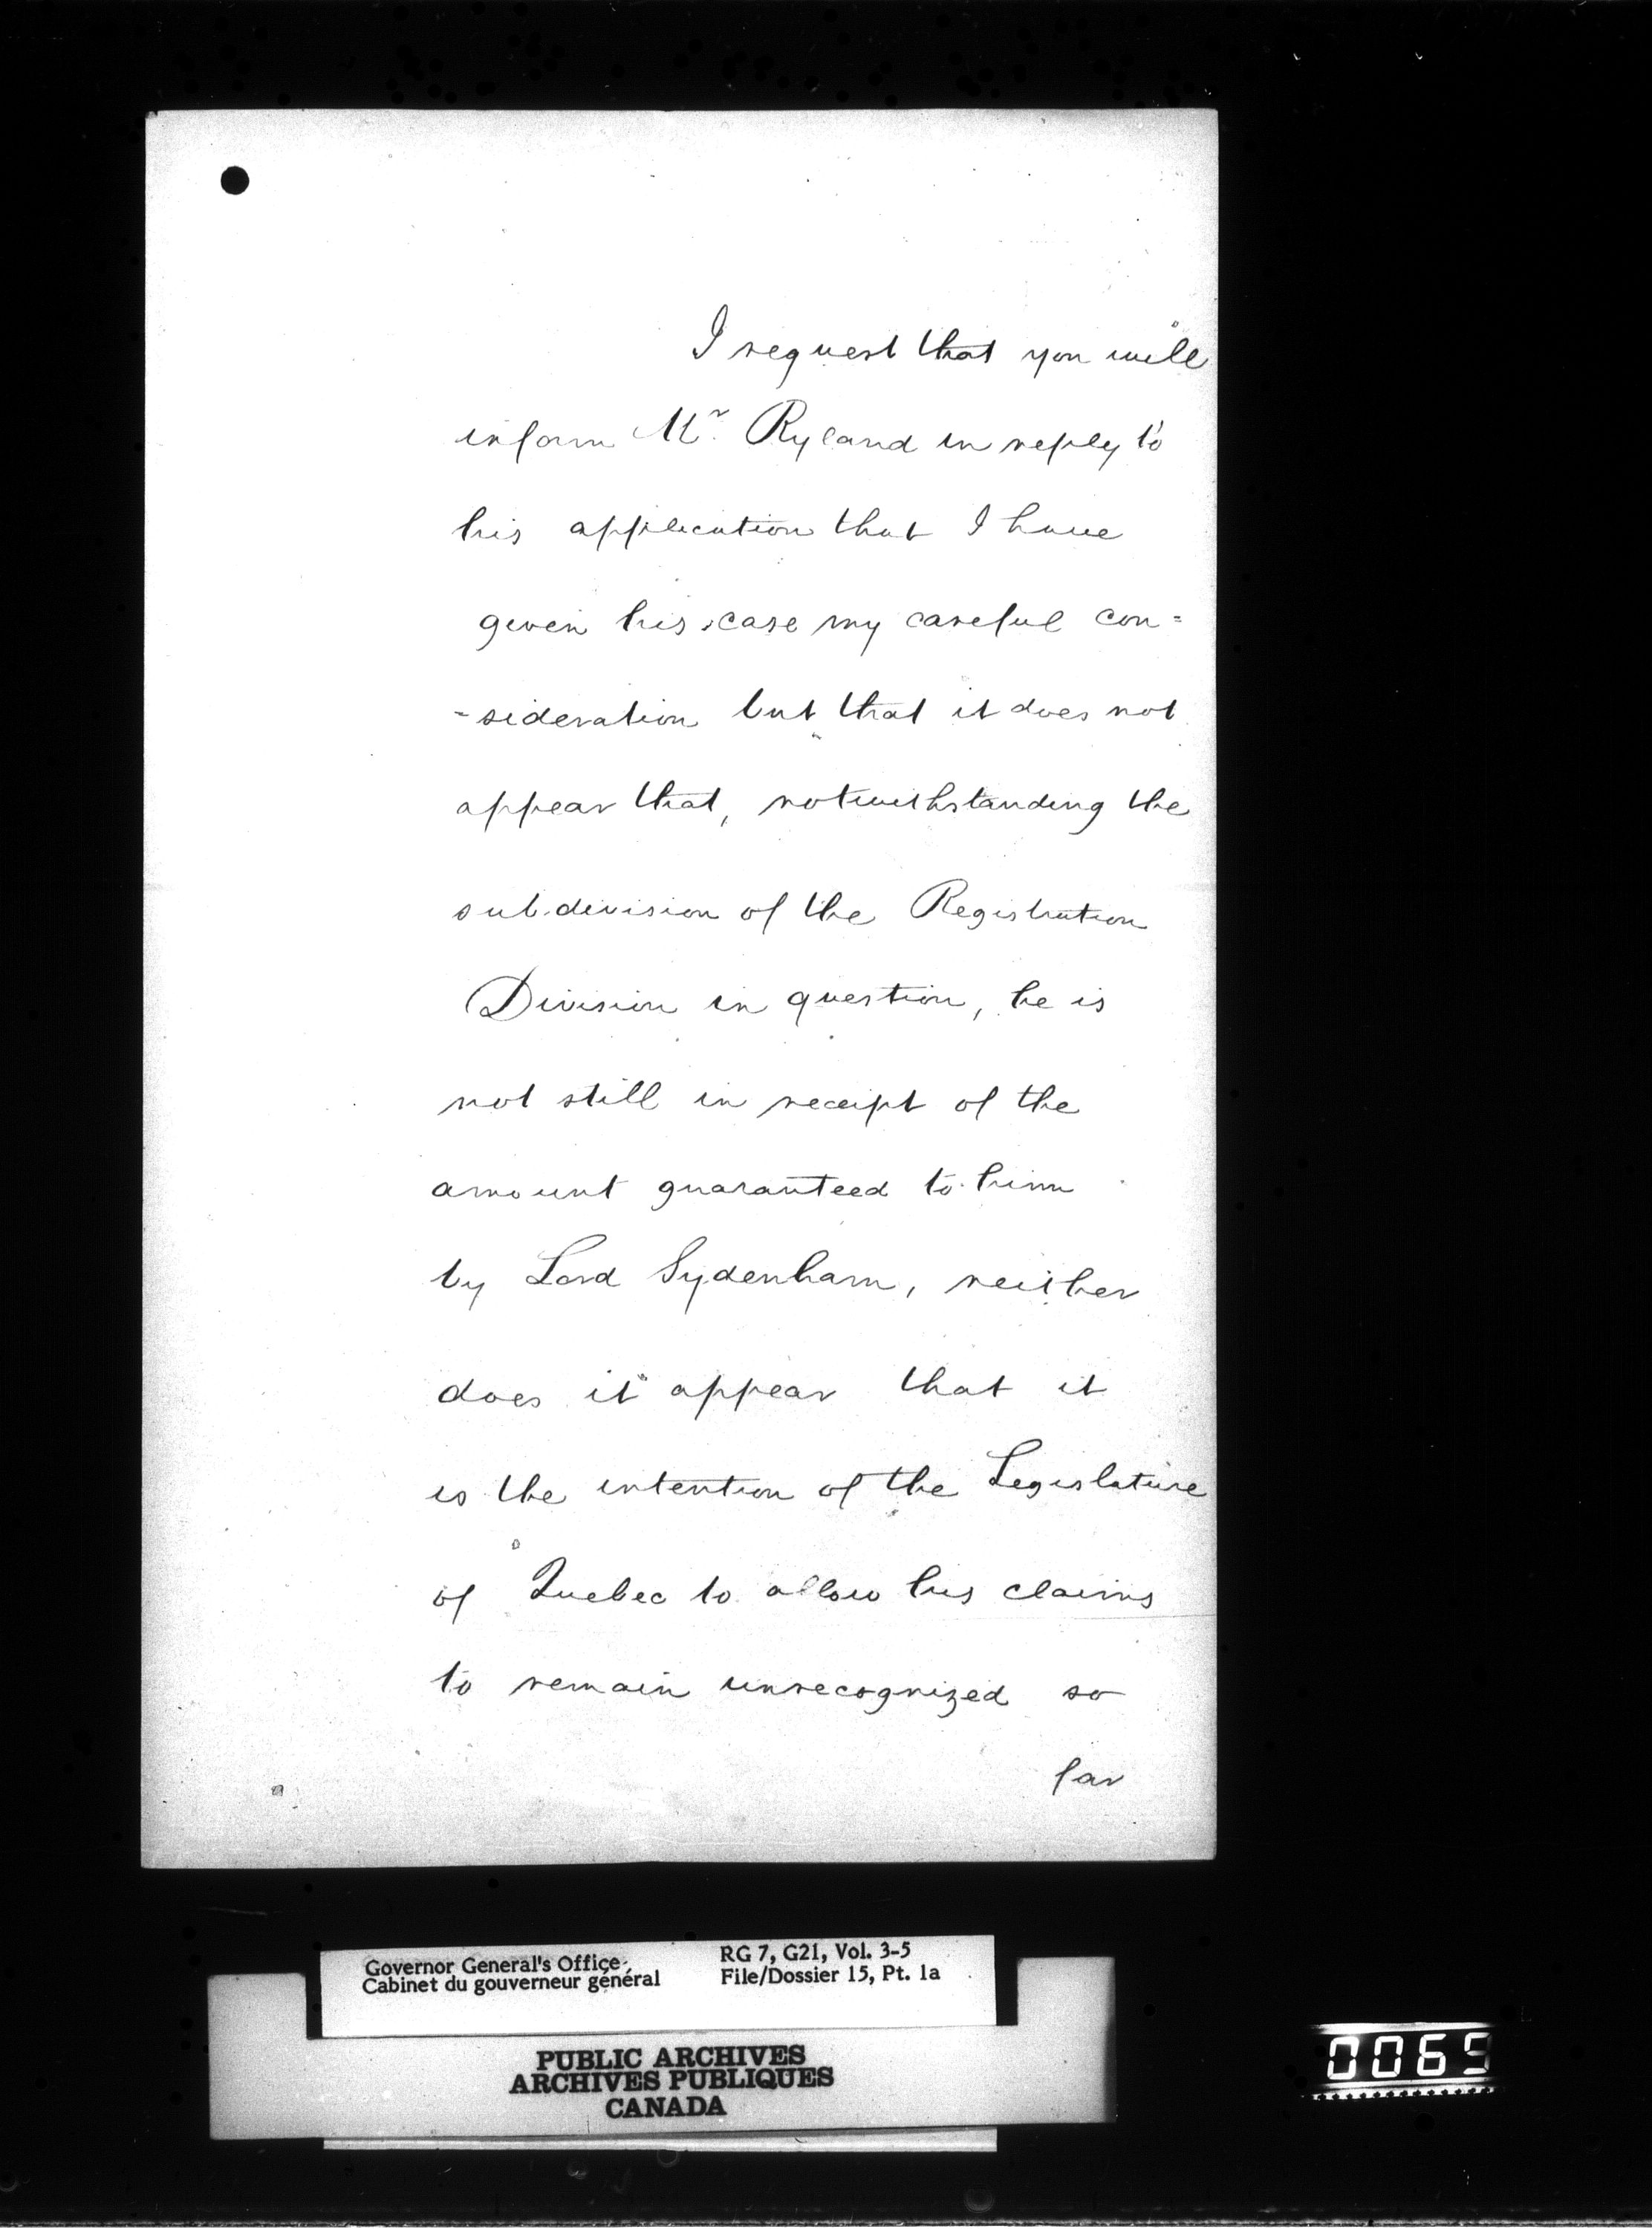 I request that you will
inform Mr. Ryland in reply to
his application that I have
given his case my careful con=
-sideration but that it does not
appear that, notwithstanding the
subdivision of the Registration
Division in question, he is
not still in receipt of the
amount guaranteed to him
by Lord Sydenham, neither
does it appear that it
is the intention of the Legislature
of Quebec to allow his claims
to remain unrecognized so
far
Governor General's Office
Cabinet du gouverneur général
RG 7, G21, Vol. 3-5
File/Dossier 15, Pt. 1a
PUBLIC ARCHIVES
ARCHIVES PUBLIQUES
CANADA
0065